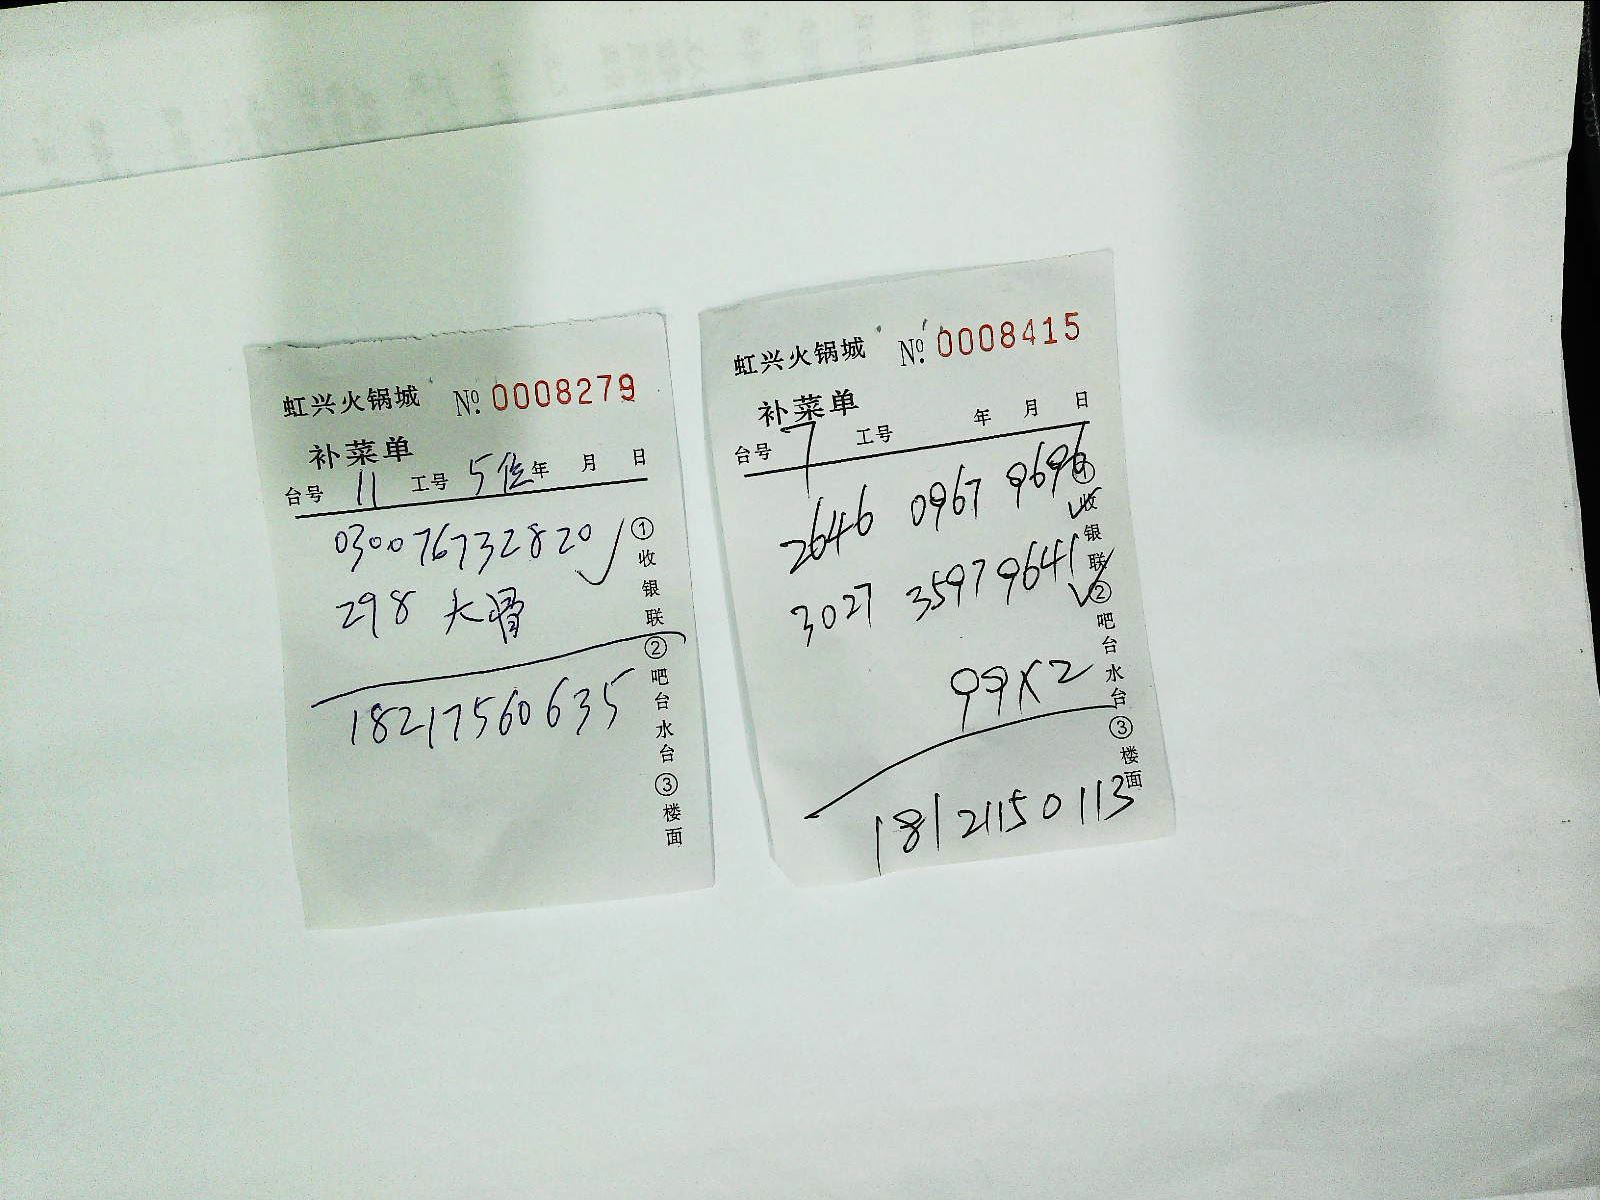 虹兴火锅城 №.0008279
补菜单
台号 11 工号 5位 年 月 日
030076732820
298 大骨
18217560635
①收银联②吧台水台③楼面
虹兴火锅城 №.0008415
补菜单
台号 7 工号 年 月 日
2646 0967 9696
3027 3597 9641
99X2
18121150113
①收银联②吧台水台③楼面